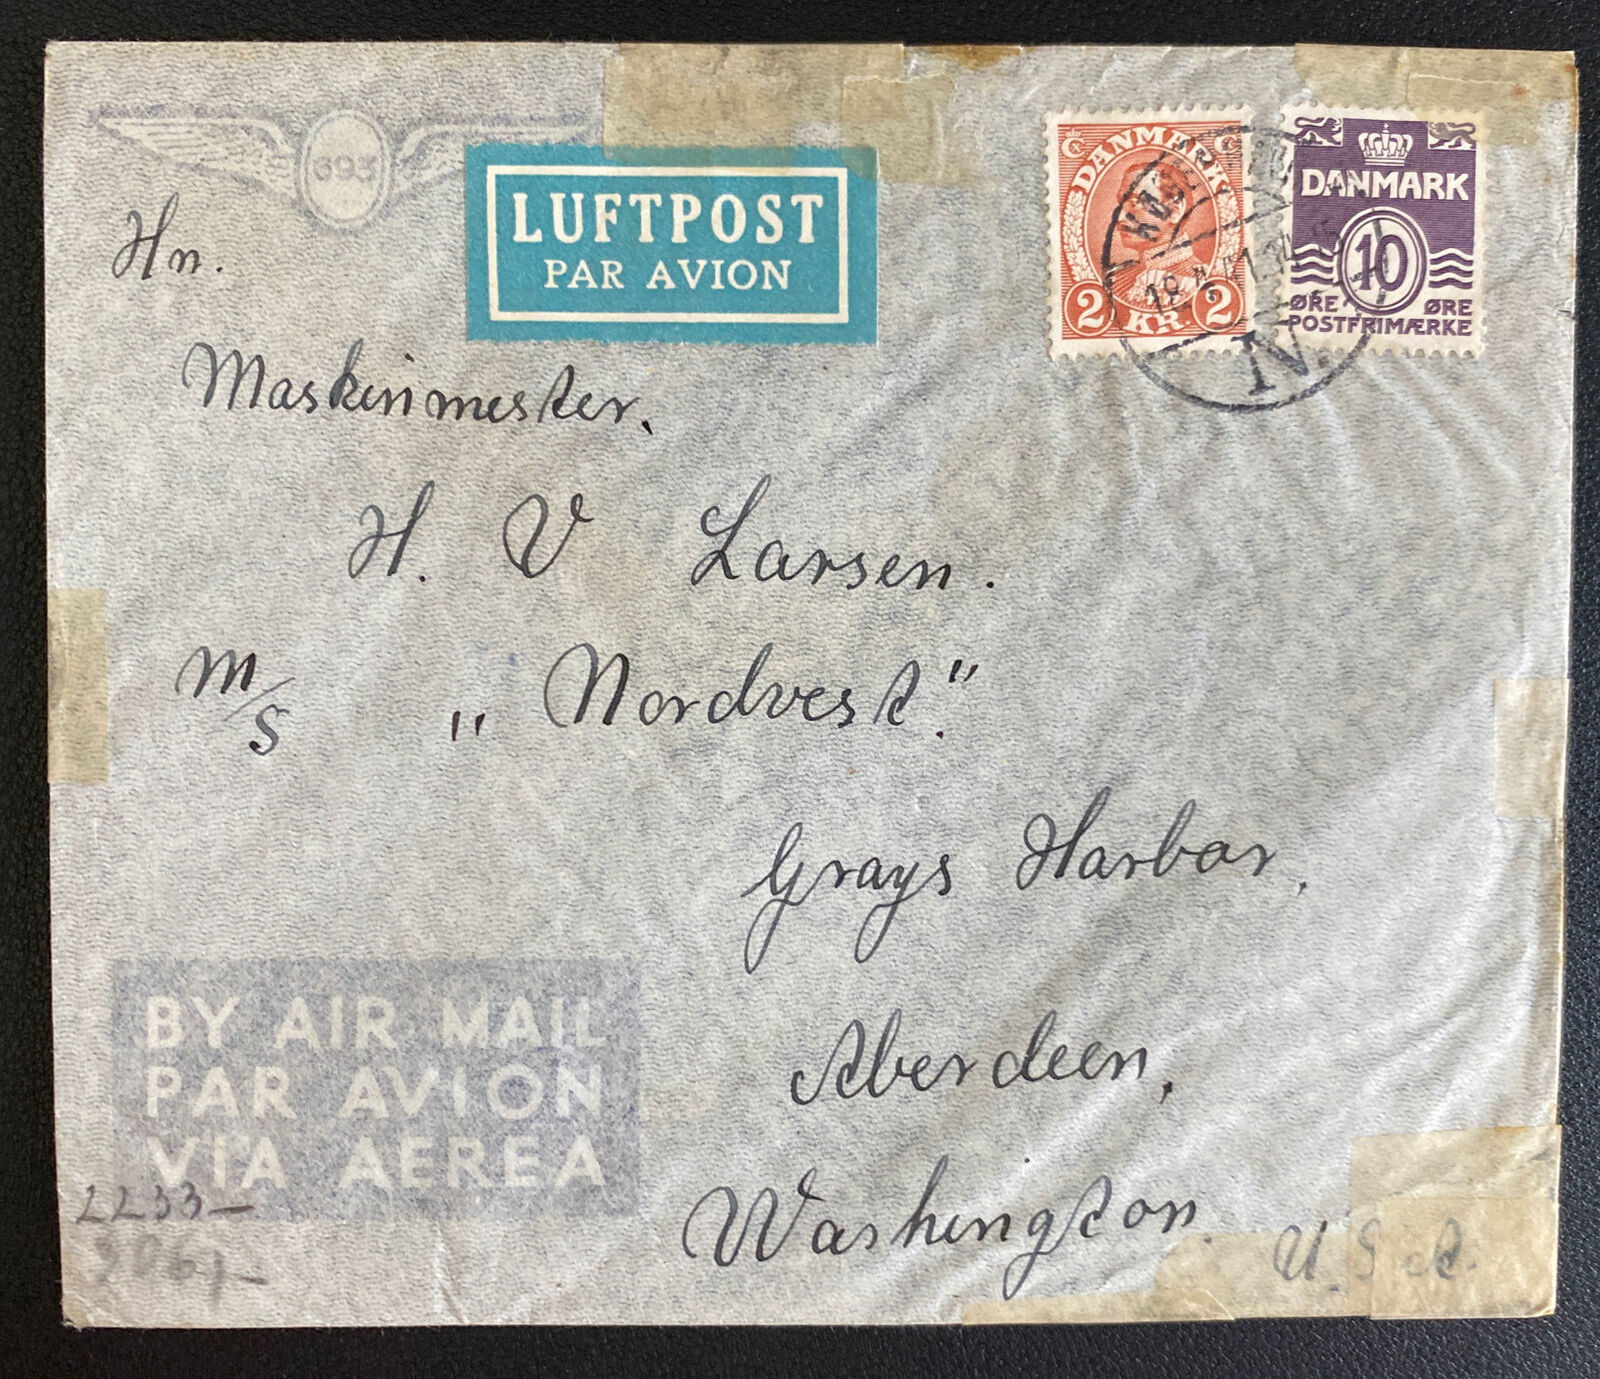 693
LUFTPOST
PAR AVION
DANMARK
2 KR. 2
DANMARK
10
ØRE ØRE
POSTFRIMÆRKE
Hn.
Maskinmester.
H. V Larsen.
M/S „Nordvest."
Grays Harbor,
Aberdeen,
Washington
U.S.A.
BY AIR MAIL
PAR AVION
VIA AEREA
2233—